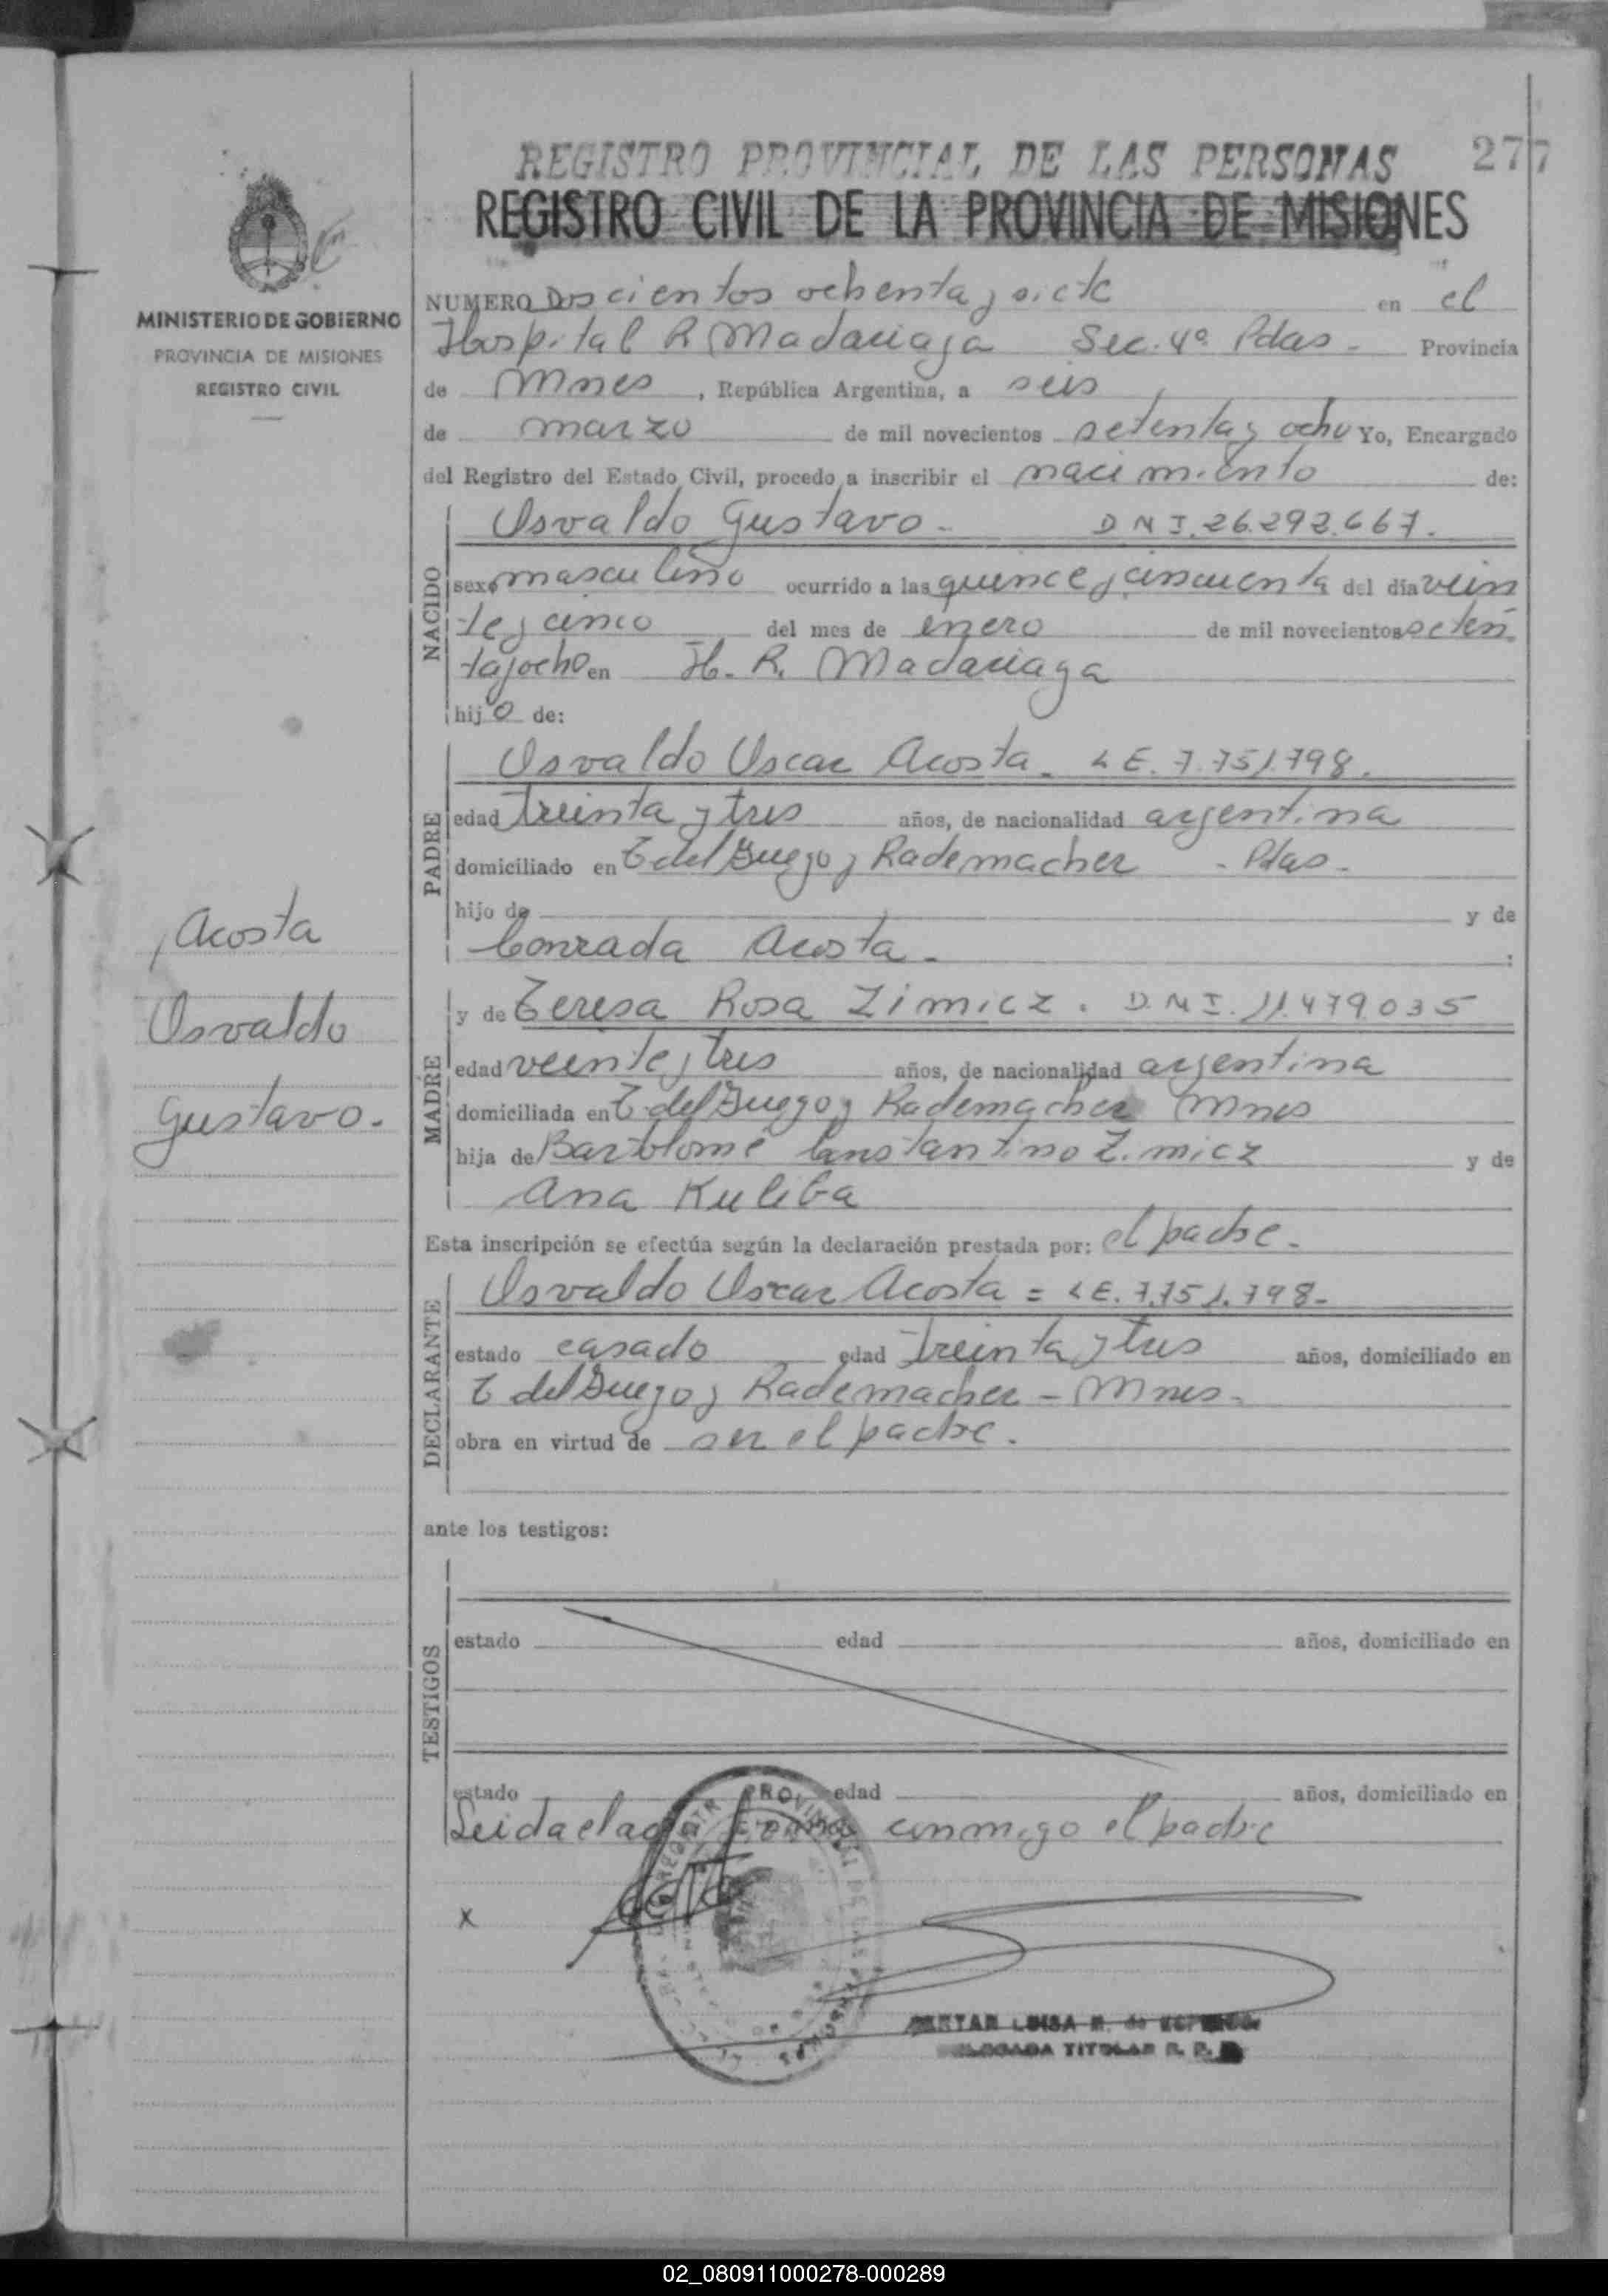 REGISTRO PROVINCIAL DE LAS PERSONAS 277
REGISTRO CIVIL DE LA PROVINCIA DE MISIONES
MINISTERIO DE GOBIERNO
PROVINCIA DE MISIONES
REGISTRO CIVIL
NUMERO Doscientos ochenta y siete en el
Hospital R Madariaga Sec. 4º Pdas - Provincia
de Mnes, República Argentina, a seis
de marzo de mil novecientos setenta y ocho Yo, Encargado
del Registro del Estado Civil, procedo a inscribir el nacimiento de:
Osvaldo Gustavo - D N I. 26.292.667.
NACIDO
sexo masculino ocurrido a las quince y cincuenta del día vein
te y cinco del mes de enero de mil novecientos seten
ta y ocho en H. R. Madariaga
hijo de:
Osvaldo Oscar Acosta - L E. 7.751.798.
PADRE
edad treinta y tres años, de nacionalidad argentina
domiciliado en T del Fuego y Rademacher - Pdas -
hijo de y de
Conrada Acosta - :
Acosta
Osvaldo
Gustavo.
y de Teresa Rosa Zimicz. D.N I. 11.479.035
MADRE
edad veinte y tres años, de nacionalidad argentina
domiciliada en T. del Fuego y Rademacher Mnes
hija de Bartolomé Constantino Zimicz y de
Ana Kuleba
Esta inscripción se efectúa según la declaración prestada por: el padre -
DECLARANTE
Osvaldo Oscar Acosta = L E. 7.751.798-
estado casado edad treinta y tres años, domiciliado en
T del Fuego y Rademacher - Mnes-
obra en virtud de ser el padre.
ante los testigos:
TESTIGOS
estado edad años, domiciliado en
estado edad años, domiciliado en
Leida el acta conmigo el padre
x
LUISA
TITULAR R. P.
02_080911000278-000289